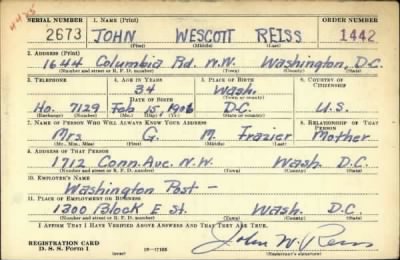 4435
SERIAL NUMBER 1. NAME (Print) ORDER NUMBER
2673 JOHN WESCOTT REISS 1442
(First) (Middle) (Last)
2. ADDRESS (Print)
1644 Columbia Rd. N.W. Washington, D.C.
(Number and street or R. F. D. number) (Town) (County) (State)
3. TELEPHONE 4. AGE IN YEARS 5. PLACE OF BIRTH 6. COUNTRY OF CITIZENSHIP
34 Wash.
DATE OF BIRTH (Town or county)
Ho. 7129 Feb 15, 1906 D.C. U.S.
(Exchange) (Number) (Mo.) (Day) (Yr.) (State or country)
7. NAME OF PERSON WHO WILL ALWAYS KNOW YOUR ADDRESS 8. RELATIONSHIP OF THAT PERSON
Mrs. G. M. Frazier Mother
(Mr., Mrs., Miss) (First) (Middle) (Last)
9. ADDRESS OF THAT PERSON
1712 Conn. Ave. N.W. Wash. D.C.
(Number and street or R. F. D. number) (Town) (County) (State)
10. EMPLOYER'S NAME
Washington Post -
11. PLACE OF EMPLOYMENT OR BUSINESS
1300 Block E St. Wash. D.C.
(Number and street or R. F. D. number) (Town) (County) (State)
I AFFIRM THAT I HAVE VERIFIED ABOVE ANSWERS AND THAT THEY ARE TRUE.
REGISTRATION CARD
D. S. S. Form 1 16—17105 John W. Reiss
(Registrant's signature)